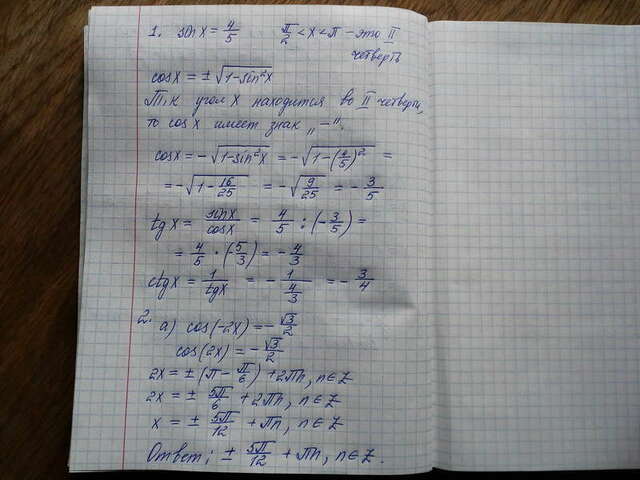 1. sin x = 4/5 π/2 < x < π – это II
четверть
cos x = ± √(1–sin²x)
Т.к угол x находится во II четверти,
то cos x имеет знак „–".
cos x = –√(1–sin²x) = –√(1–(4/5)²) =
= –√(1 – 16/25) = –√(9/25) = – 3/5
tg x = sin x/cos x = 4/5 : (–3/5) =
= 4/5 · (–5/3) = – 4/3
ctg x = 1/tg x = – 1/(4/3) = – 3/4
2. а) cos(–2x) = – √3/2
cos(2x) = – √3/2
2x = ± (π – π/6) + 2πn, n∈Z
2x = ± 5π/6 + 2πn, n∈Z
x = ± 5π/12 + πn, n∈Z
Ответ: ± 5π/12 + πn, n∈Z.